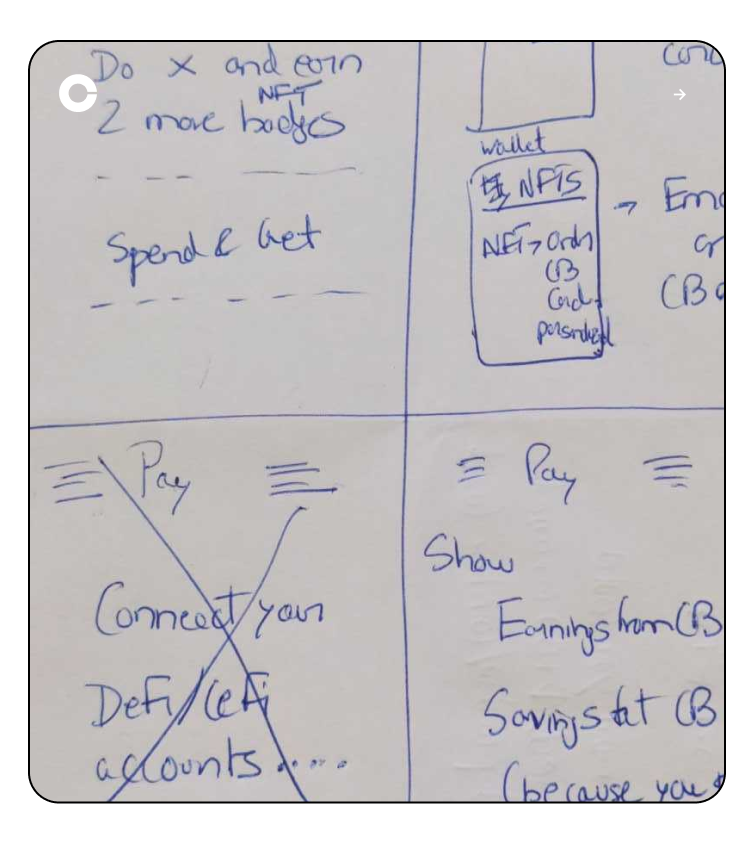 Do X and earn
NFT
2 more badges
Spend & Get
wallet
NFTS
NFT → Order
CB
Card
→ Emo
CB
Pay
Connect your
DeFi/CeFi
accounts....
Pay
Show
Earnings from CB
Savings at CB
(because you